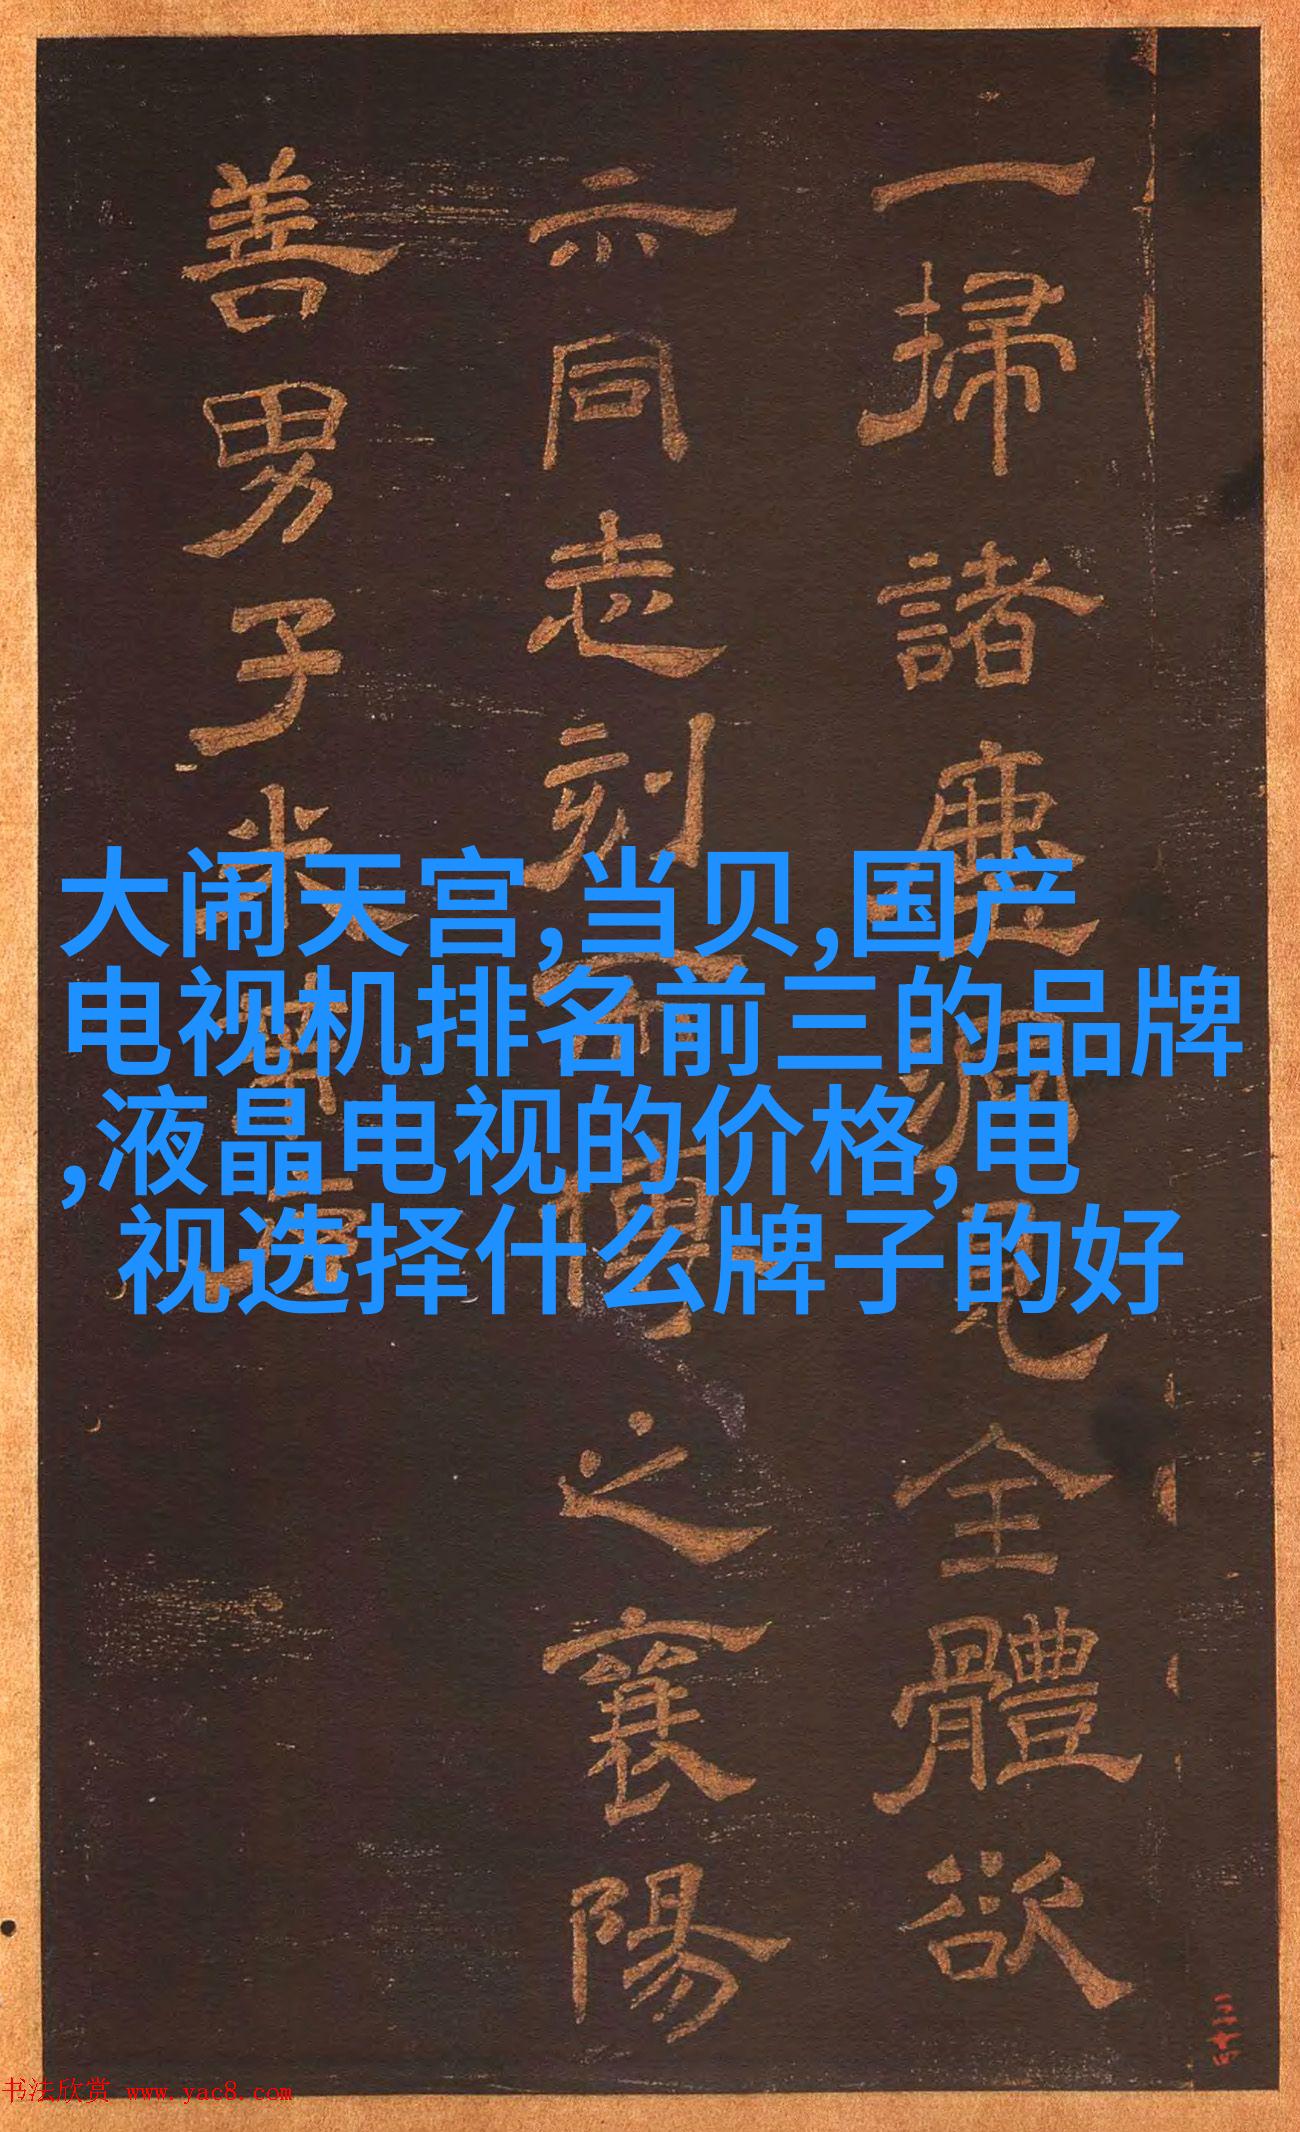 一掃諸塵洞見全體欲
示同志刻而傳之襄陽
善男子米芾書
大闹天宫,当贝,国产
电视机排名前三的品牌
,液晶电视的价格,电
视选择什么牌子的好
书法欣赏 www.yac8.com